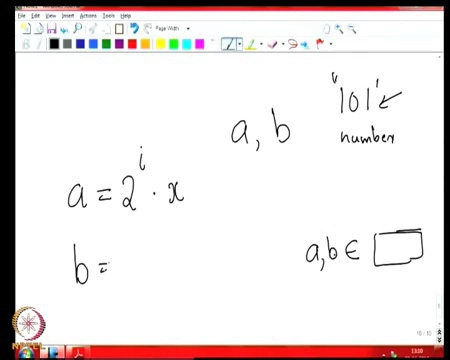 File Edit View Insert Actions Tools Help
Page Width
"101"
a, b
number
a = 2^i · x
b =
a, b ∈
10/10
13:10